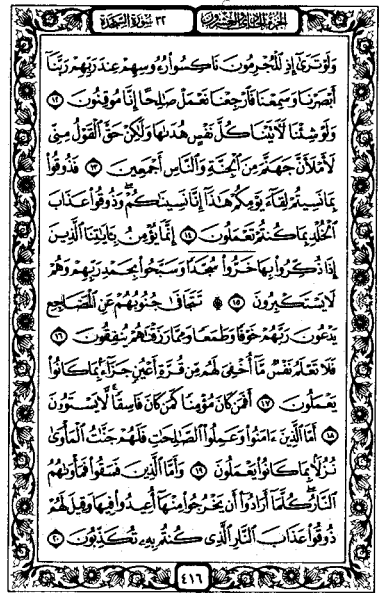 الجزء الحادي والعشرون ٣٢ سورة السجدة
وَلَوْ تَرَىٰٓ إِذِ ٱلْمُجْرِمُونَ نَاكِسُوا۟ رُءُوسِهِمْ عِندَ رَبِّهِمْ رَبَّنَآ
أَبْصَرْنَا وَسَمِعْنَا فَٱرْجِعْنَا نَعْمَلْ صَٰلِحًا إِنَّا مُوقِنُونَ ١٢
وَلَوْ شِئْنَا لَءَاتَيْنَا كُلَّ نَفْسٍ هُدَىٰهَا وَلَٰكِنْ حَقَّ ٱلْقَوْلُ مِنِّى
لَأَمْلَأَنَّ جَهَنَّمَ مِنَ ٱلْجِنَّةِ وَٱلنَّاسِ أَجْمَعِينَ ١٣ فَذُوقُوا۟
بِمَا نَسِيتُمْ لِقَآءَ يَوْمِكُمْ هَٰذَآ إِنَّا نَسِينَٰكُمْ ۖ وَذُوقُوا۟ عَذَابَ
ٱلْخُلْدِ بِمَا كُنتُمْ تَعْمَلُونَ ١٤ إِنَّمَا يُؤْمِنُ بِـَٔايَٰتِنَا ٱلَّذِينَ
إِذَا ذُكِّرُوا۟ بِهَا خَرُّوا۟ سُجَّدًا وَسَبَّحُوا۟ بِحَمْدِ رَبِّهِمْ وَهُمْ
لَا يَسْتَكْبِرُونَ ١٥ ۞ تَتَجَافَىٰ جُنُوبُهُمْ عَنِ ٱلْمَضَاجِعِ
يَدْعُونَ رَبَّهُمْ خَوْفًا وَطَمَعًا وَمِمَّا رَزَقْنَٰهُمْ يُنفِقُونَ ١٦
فَلَا تَعْلَمُ نَفْسٌ مَّآ أُخْفِىَ لَهُم مِّن قُرَّةِ أَعْيُنٍ جَزَآءًۢ بِمَا كَانُوا۟
يَعْمَلُونَ ١٧ أَفَمَن كَانَ مُؤْمِنًا كَمَن كَانَ فَاسِقًا ۚ لَّا يَسْتَوُۥنَ
١٨ أَمَّا ٱلَّذِينَ ءَامَنُوا۟ وَعَمِلُوا۟ ٱلصَّٰلِحَٰتِ فَلَهُمْ جَنَّٰتُ ٱلْمَأْوَىٰ
نُزُلًۢا بِمَا كَانُوا۟ يَعْمَلُونَ ١٩ وَأَمَّا ٱلَّذِينَ فَسَقُوا۟ فَمَأْوَىٰهُمُ
ٱلنَّارُ ۖ كُلَّمَآ أَرَادُوٓا۟ أَن يَخْرُجُوا۟ مِنْهَآ أُعِيدُوا۟ فِيهَا وَقِيلَ لَهُمْ
ذُوقُوا۟ عَذَابَ ٱلنَّارِ ٱلَّذِى كُنتُم بِهِۦ تُكَذِّبُونَ ٢٠
٤١٦